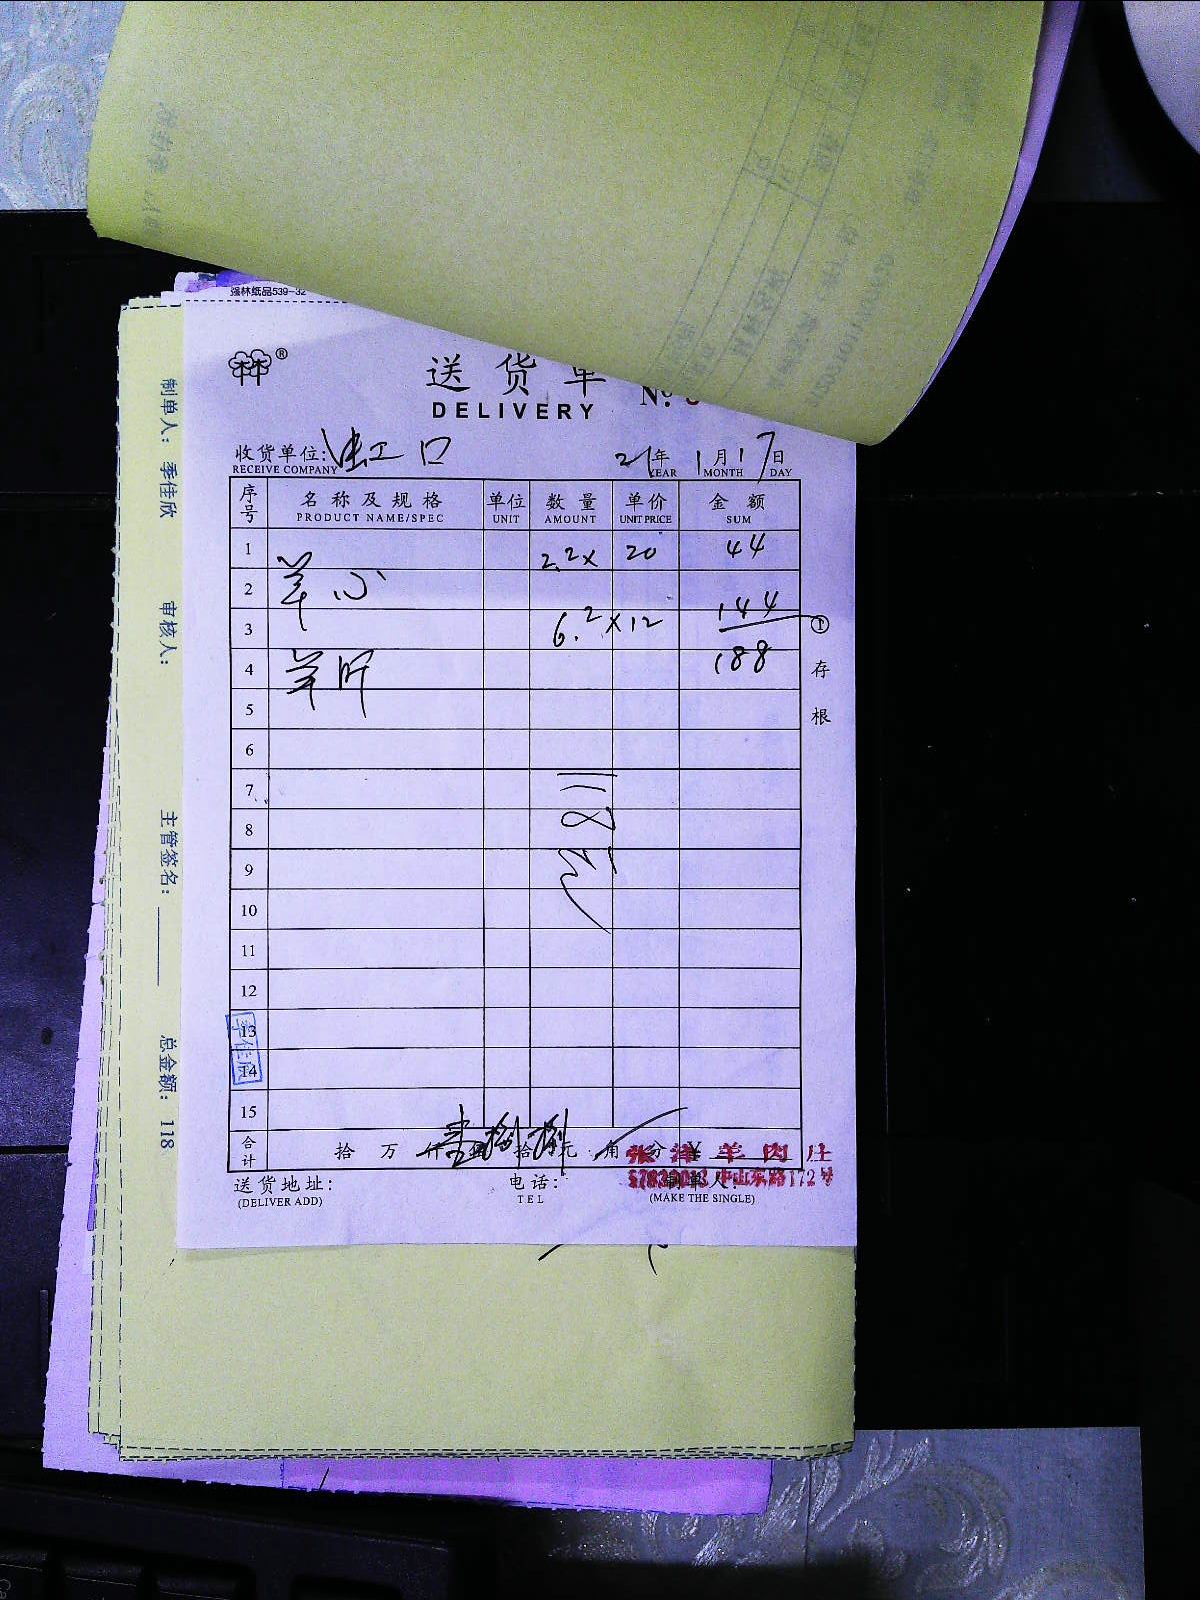 强林纸品539-32
林林®
送货单
DELIVERY
No.
收货单位: 虹口 21年 1月17日
RECEIVE COMPANY YEAR MONTH DAY
序号 名称及规格 单位 数量 单价 金额
PRODUCT NAME/SPEC UNIT AMOUNT UNIT PRICE SUM
1 2.2× 20 44
2 羊心 144
3 6.2×12 ①
4 羊肝 188
存根
5
6
7
8
9
10
11
12
13
14
15
118元
季佳欣
合计 拾 万 仟 佰 拾 元 角 分 ¥
壹 捌 捌
张 萍 羊 肉 庄
中山东路172号
送货地址: 电话: 制单人:
(DELIVER ADD) TEL (MAKE THE SINGLE)
制单人: 季佳欣 审核人: 主管签名: 总金额: 118